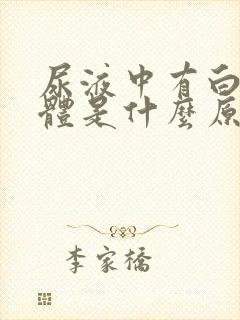 尿液中有白
體是什麼原
李家橋